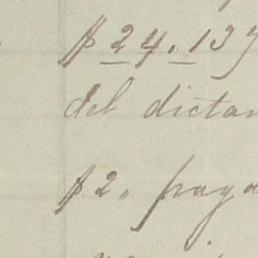 $ 24.137
del dictam
$ 2. paga